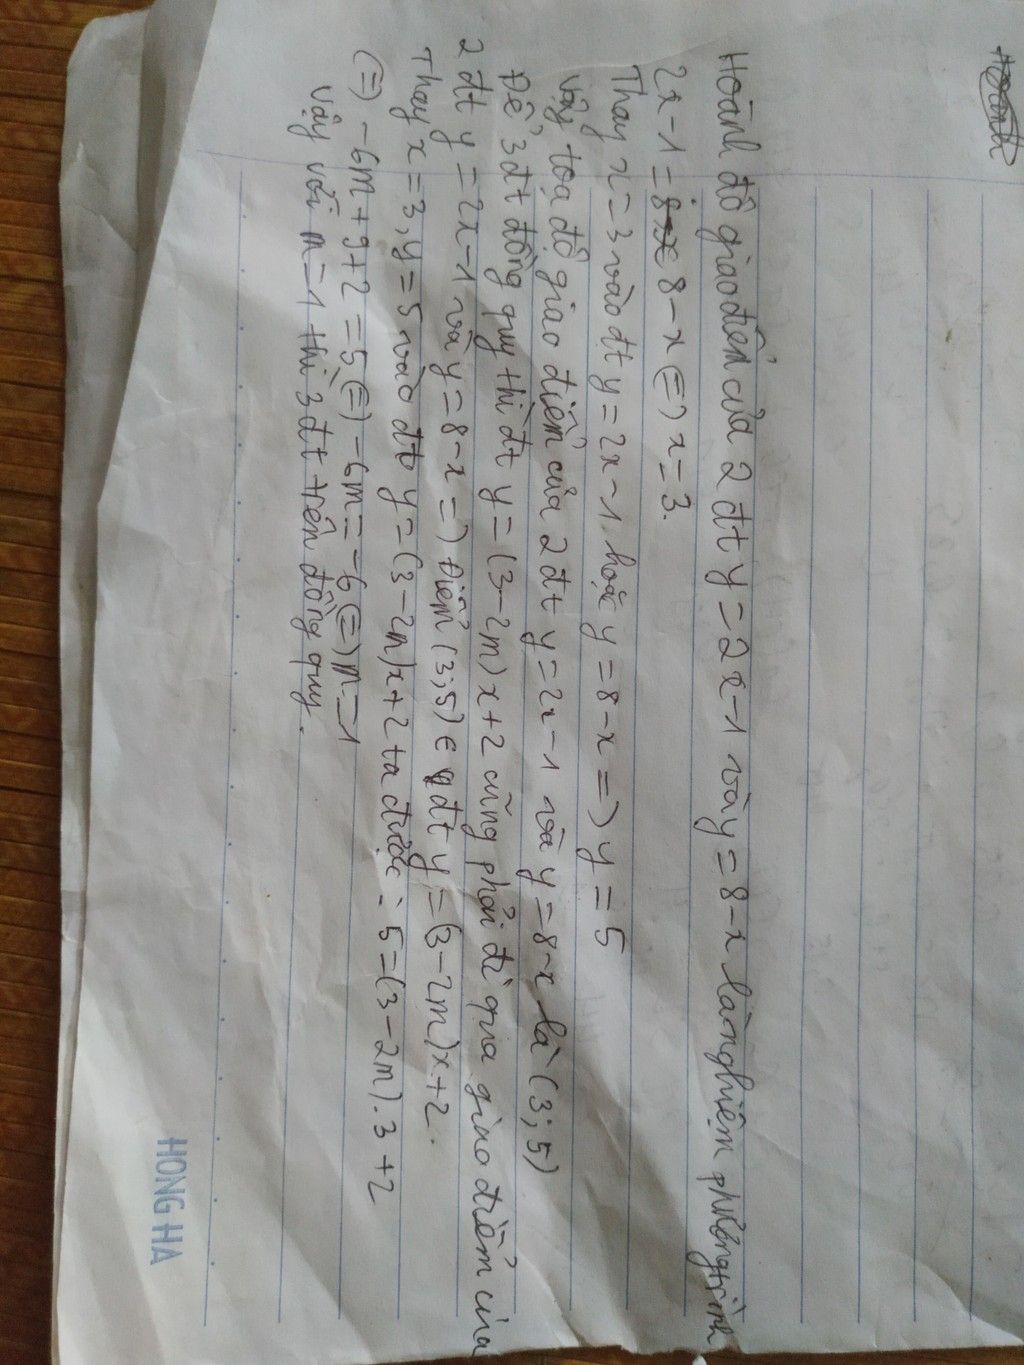 Hoành độ giao điểm của 2 đt y = 2x - 1 và y = 8 - x là nghiệm phương trình
2x - 1 = 8 - x (=) x = 3.
Thay x = 3 vào đt y = 2x - 1 hoặc y = 8 - x =) y = 5
Vậy tọa độ giao điểm của 2 đt y = 2x - 1 và y = 8 - x là (3; 5)
Để 3 đt đồng quy thì đt y = (3 - 2m)x + 2 cũng phải đi qua giao điểm của
2 đt y = 2x - 1 và y = 8 - x =) Điểm (3; 5) ∈ đt y = (3 - 2m)x + 2.
Thay x = 3, y = 5 vào đt y = (3 - 2m)x + 2 ta được: 5 = (3 - 2m).3 + 2
(=) -6m + 9 + 2 = 5 (=) -6m = -6 (=) m = 1
Vậy với m = 1 thì 3 đt trên đồng quy.
HONG HA